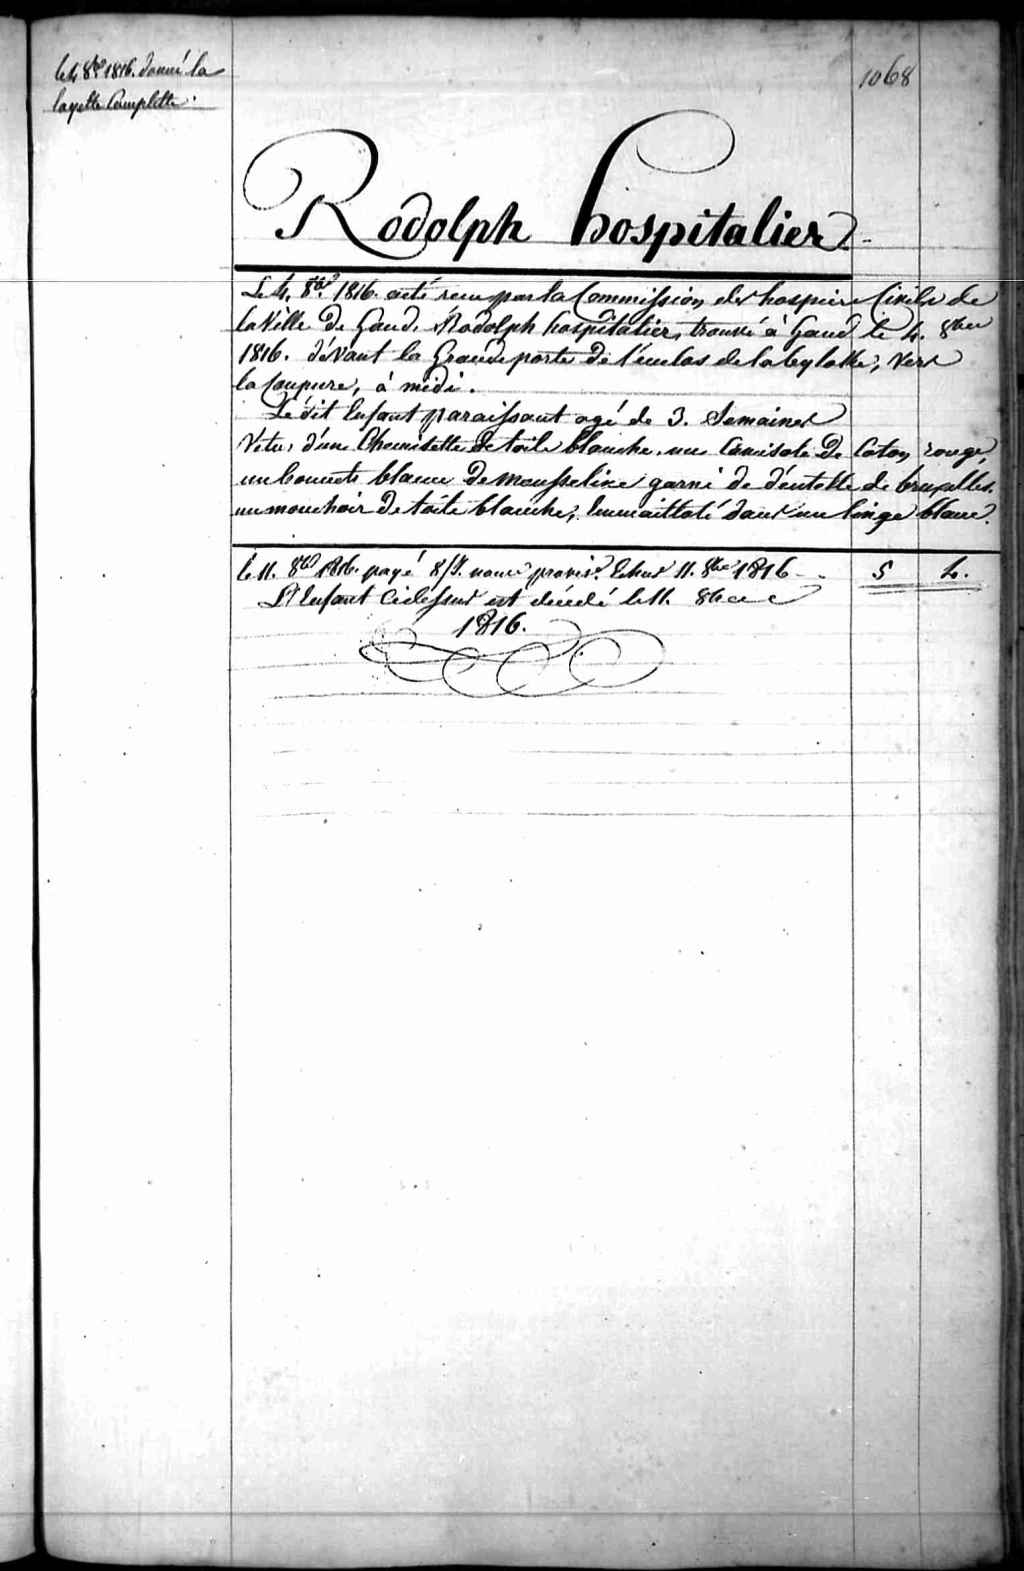 le 4 8bre 1816. donné la
layette Complette.
1068
Rodolph hospitalier
Le 4. 8bre 1816. a été recu par la Commission des hospices Civils de
la Ville de Gand, Rodolph hospitalier, trouvé à Gand le 4. 8bre
1816. dévant la Grande porte de l'enclos de la byloke, vers
la Coupure, à midi.
Le dit Enfant paraissant agé de 3. Semaines
Vetu, d'une Chemisette de toile blanche, une Camisole de Coton rouge,
un bonnet blanc de mousseline garni de déntelle de bruxelles.
un mouchoir de toile blanche, Emmailloté dans un linge blanc.
le 11. 8bre 1816. payé 8/J. nource provis. Echus 11. 8bre 1816 5 4.
L'Enfant Cidessus est décédé le 11. 8bre
1816.